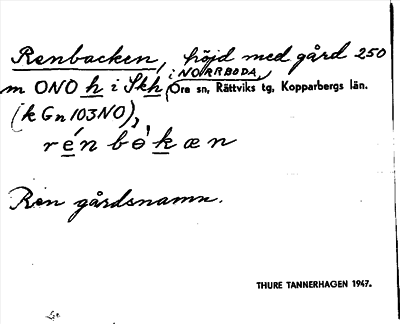 Renbacken, höjd med gård 250
i NORRBODA,
m ONO h i Skh (Ore sn, Rättviks tg, Kopparbergs län.
(k Gn 103NO),
rénbɵ̀kæn
Ren gårdsnamn.
THURE TANNERHAGEN 1947.